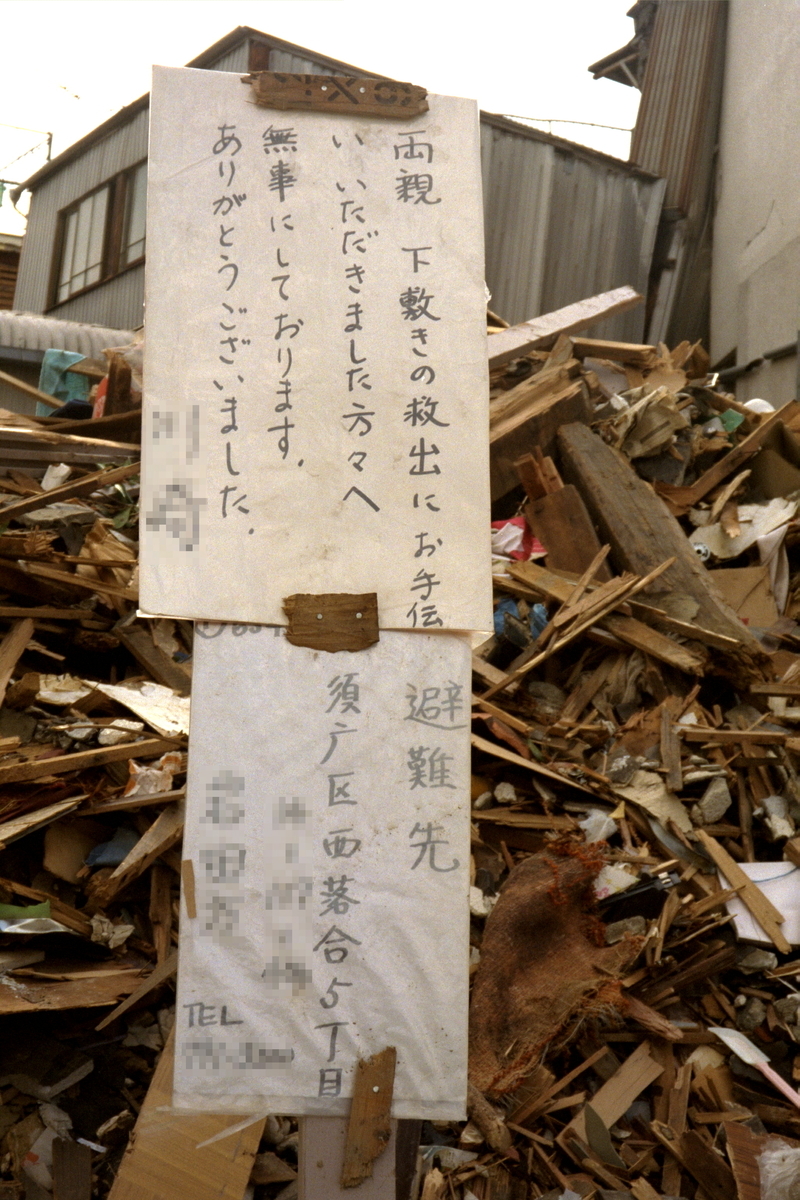 両親 下敷きの救出にお手伝
い いただきました方々へ
無事にしております。
ありがとうございました。
避難先
須广区西落合5丁目
TEL